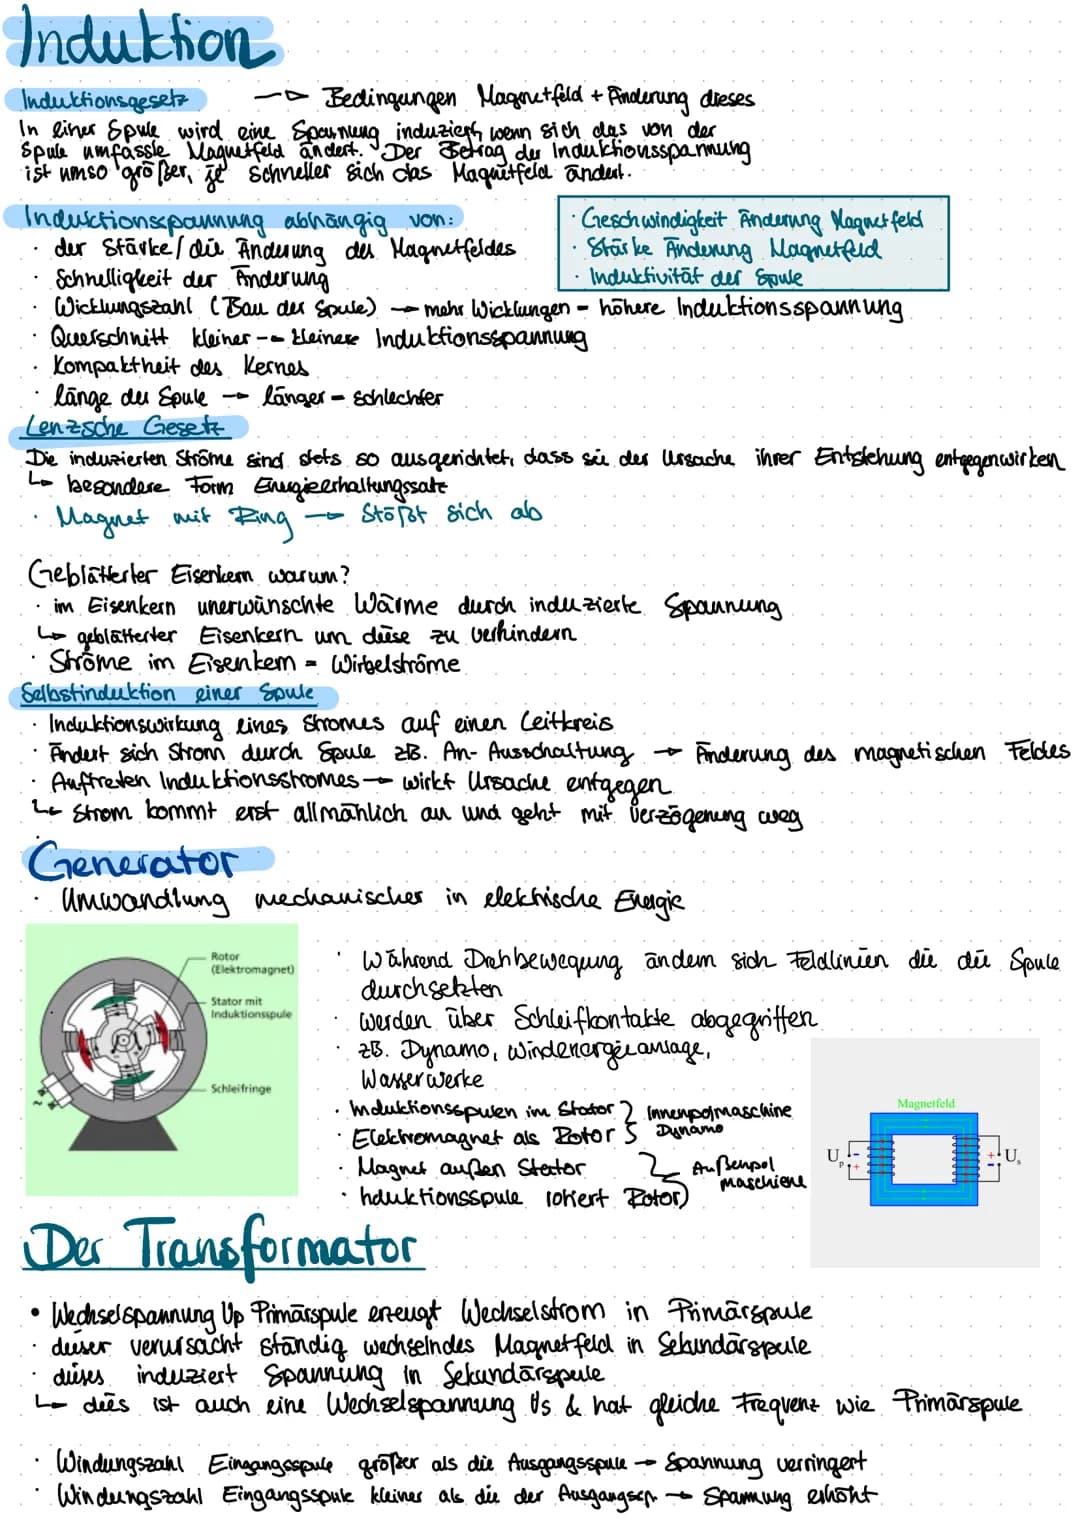 Induktion
Induktionsgesetz → Bedingungen Magnetfeld + Änderung dieses
In einer Spule wird eine Spannung induziert, wenn sich das von der
Spule umfasste Magnetfeld ändert. Der Betrag der Induktionsspannung
ist umso größer, je schneller sich das Magnetfeld ändert.
Induktionsspannung abhängig von:
· der Stärke/die Änderung des Magnetfeldes
· Schnelligkeit der Änderung
· Geschwindigkeit Änderung Magnetfeld
· Stärke Änderung Magnetfeld
· Induktivität der Spule
· Wicklungszahl (Bau der Spule) → mehr Wicklungen = höhere Induktionsspannung
· Querschnitt kleiner → kleinere Induktionsspannung
· Kompaktheit des Kernes
· länge der Spule → länger = schlechter
Lenzsche Gesetz
Die induzierten Ströme sind stets so ausgerichtet, dass sie der Ursache ihrer Entstehung entgegenwirken
↳ besondere Form Energieerhaltungssatz
· Magnet mit Ring → Stößt sich ab
Geblätterter Eisenkern warum?
· im Eisenkern unerwünschte Wärme durch induzierte Spannung
↳ geblätterter Eisenkern um diese zu verhindern
· Ströme im Eisenkern = Wirbelströme
Selbstinduktion einer Spule
· Induktionswirkung eines Stromes auf einen Leitkreis
· Ändert sich Strom durch Spule zB. An- Ausschaltung → Änderung des magnetischen Feldes
· Auftreten Induktionsstromes → wirkt Ursache entgegen
↳ Strom kommt erst allmählich an und geht mit Verzögerung weg
Generator
· Umwandlung mechanischer in elektrische Energie
Rotor
(Elektromagnet)
Stator mit
Induktionsspule
Schleifringe
· Während Drehbewegung ändern sich Feldlinien die die Spule
durchsetzten
· werden über Schleifkontakte abgegriffen
· zB. Dynamo, Windenergieanlage,
Wasserwerke
· Induktionsspulen im Stator } Innenpolmaschine
· Elektromagnet als Rotor } Dynamo
· Magnet außen Stator } Außenpol
· Induktionsspule rotiert Rotor) maschiene
Magnetfeld
Up - +
+ - Us
Der Transformator
• Wechselspannung Up Primärspule erzeugt Wechselstrom in Primärspule
· dieser verursacht ständig wechselndes Magnetfeld in Sekundärspule
· dieses induziert Spannung in Sekundärspule
↳ dies ist auch eine Wechselspannung Us & hat gleiche Frequenz wie Primärspule
· Windungszahl Eingangsspule größer als die Ausgangsspule → Spannung verringert
· Windungszahl Eingangsspule kleiner als die der Ausgangssp. → Spannung erhöht